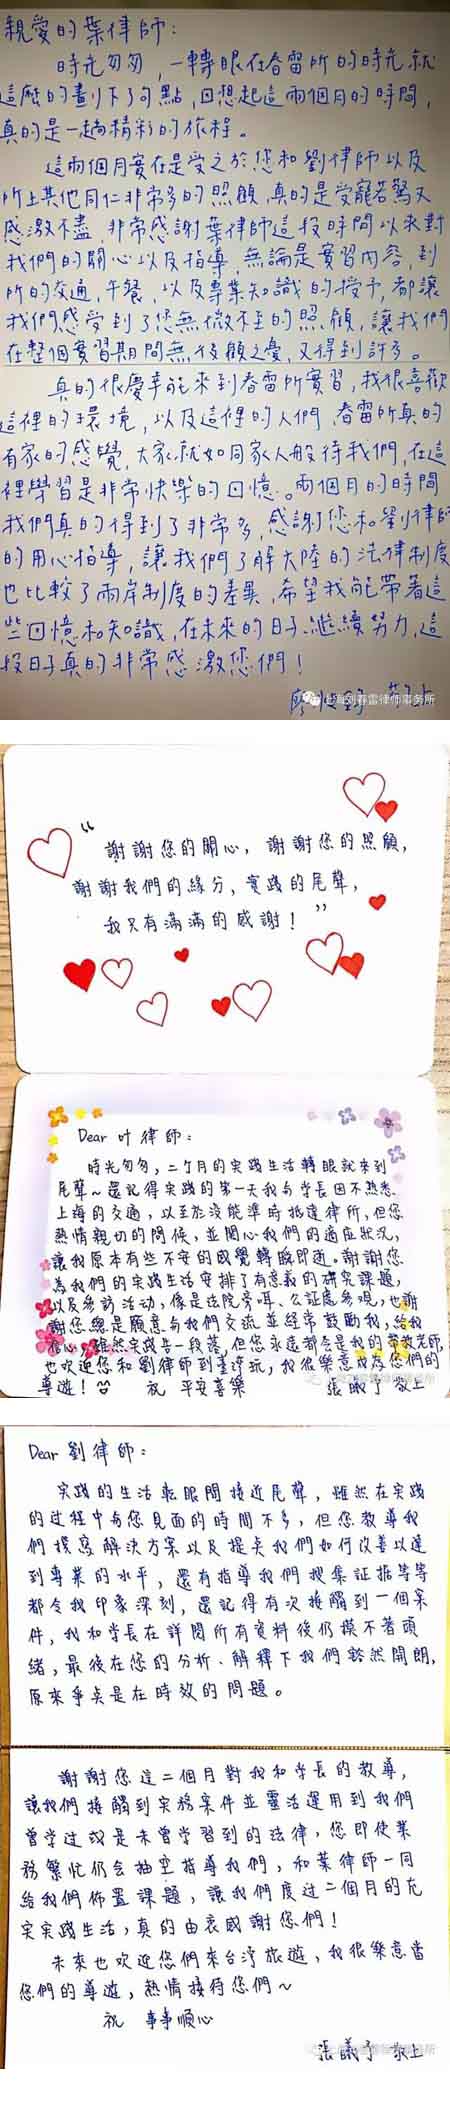 親愛的葉律師：
時光匆匆，一轉眼在春雷所的時光就
這麼的劃下了句點，回想起這兩個月的時間，
真的是一趟精彩的旅程。
這兩個月實在是受之於您和劉律師以及
所上其他同仁非常多的照顧，真的是受寵若驚又
感激不盡，非常感謝葉律師這段時間以來對
我們的關心以及指導，無論是實習內容，到
所的交通，午餐，以及專業知識的授予，都讓
我們感受到了您無微不至的照顧，讓我們
在整個實習期間無後顧之憂，又得到許多。
真的很慶幸能來到春雷所實習，我很喜歡
這裡的環境，以及這裡的人們，春雷所真的
有家的感覺，大家就如同家人般待我們，在這
裡學習是非常快樂的回憶。兩個月的時間
我們真的得到了非常多，感謝您和劉律師
的用心指導，讓我們了解大陸的法律制度
也比較了兩岸制度的差異，希望我能帶著這
些回憶和知識，在未來的日子繼續努力，這
段日子真的非常感激您們！
廖 敬上
上海刘春雷律师事务所
“謝謝您的關心，謝謝您的照顧，
謝謝我們的緣分，實踐的尾聲，
我只有滿滿的感謝！”
Dear 叶律師：
時光匆匆，二个月的实践生活轉眼就來到
尾聲~還記得实践的第一天我与学長因不熟悉
上海的交通，以至於沒能準時抵達律所，但您
熱情親切的問候，並關心我們的適应狀況，
讓我原本有些不安的感覺轉瞬即逝。謝謝您
為我們的实践生活安排了有意義的研究課題，
以及參訪活动，像是法院旁听、公証處參观，也謝
謝您總是願意与我們交流並經常鼓勵我，給我
信心，雖然实践告一段落，但您永遠都会是我的帶教老師，
也欢迎您和劉律師到臺湾玩，我很樂意成為您們的
導遊！ 祝 平安喜樂 張議予 敬上
Dear 劉律師：
实践的生活転眼間接近尾聲，雖然在实践
的过程中与您見面的時間不多，但您教導我
們撰寫解決方案以及提点我們如何改善以達
到專業的水平，還有指導我們搜集証据等等
都令我印象深刻，還記得有次接觸到一個案
件，我和学長在詳閱所有資料後仍摸不著頭
緒，最後在您的分析、解釋下我們豁然開朗，
原來爭点是在時效的問題。
謝謝您這二個月對我和学長的教導，
讓我們接觸到实務案件並靈活運用到我們
曾学过或是未曾学習到的法律，您即使業
務繁忙仍会抽空指導我們，和葉律師一同
給我們佈置課題，讓我們度过二個月的充
实实践生活，真的由衷感謝您們！
未來也欢迎您們來台湾旅遊，我很樂意當
您們的導遊，熱情接待您們~
祝 事事順心
張議予 敬上